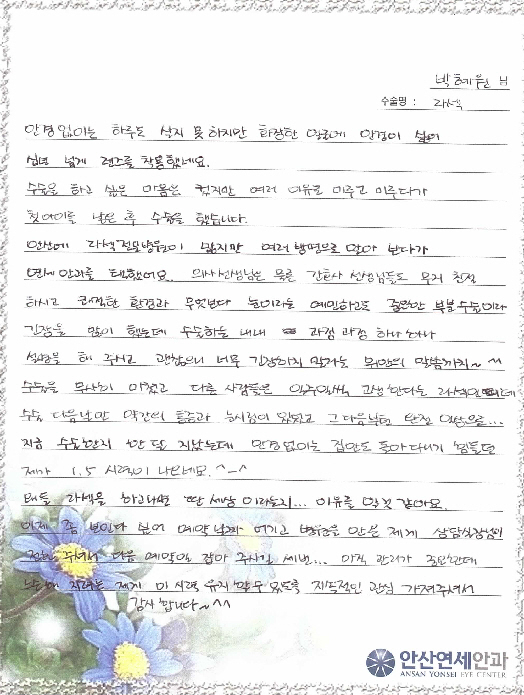 박혜원 님
수술명 : 라섹
안경없이는 하루도 살지 못하지만 화장한 얼굴에 안경이 싫어
십년 넘게 렌즈를 착용했네요.
수술을 하고 싶은 마음은 컸지만 여러 이유로 미루고 미루다가
첫아이를 낳은 후 수술을 했습니다.
안산에 라섹전문병원이 많지만 여러방면으로 알아 보다가
연세안과를 택했어요. 의사선생님은 물론 간호사 선생님들도 무지 친절
하시고 쾌적한 환경과 무엇보다 눈이라는 예민하고도 중요한 부분 수술이라
긴장을 많이 했는데 수술하는 내내 과정 과정 하나 하나
설명을 해 주시고 괜찮으니 너무 긴장하지 말라는 위안의 말씀까지~ ^^
수술을 무사히 마쳤고 다른 사람들은 일주일씩 고생한다는 라섹인데
수술 다음날만 약간의 통증과 눈시림이 있었고 그 다음날부턴 안정 이었으로...
지금 수술한지 한 달 지났는데 안경없이는 집안도 돌아다니기 힘들던
제가 1.5 시력이 나오네요. ^-^
왜들 라섹을 하고나면 딴 세상 이라는지... 이유를 알 것 같아요.
이제 좀 보인다 싶어 예약날짜 어기고 병원을 안온 제게 상담실장님이
전화 주셔서 다음 예약일 잡아 주시길 세번... 아직 관리가 중요한데
노는데 정신팔린 제게 이 시력 유지 할 수 있도록 지속적인 관심 가져주셔서
감사합니다~ ^^
안산연세안과
ANSAN YONSEI EYE CENTER